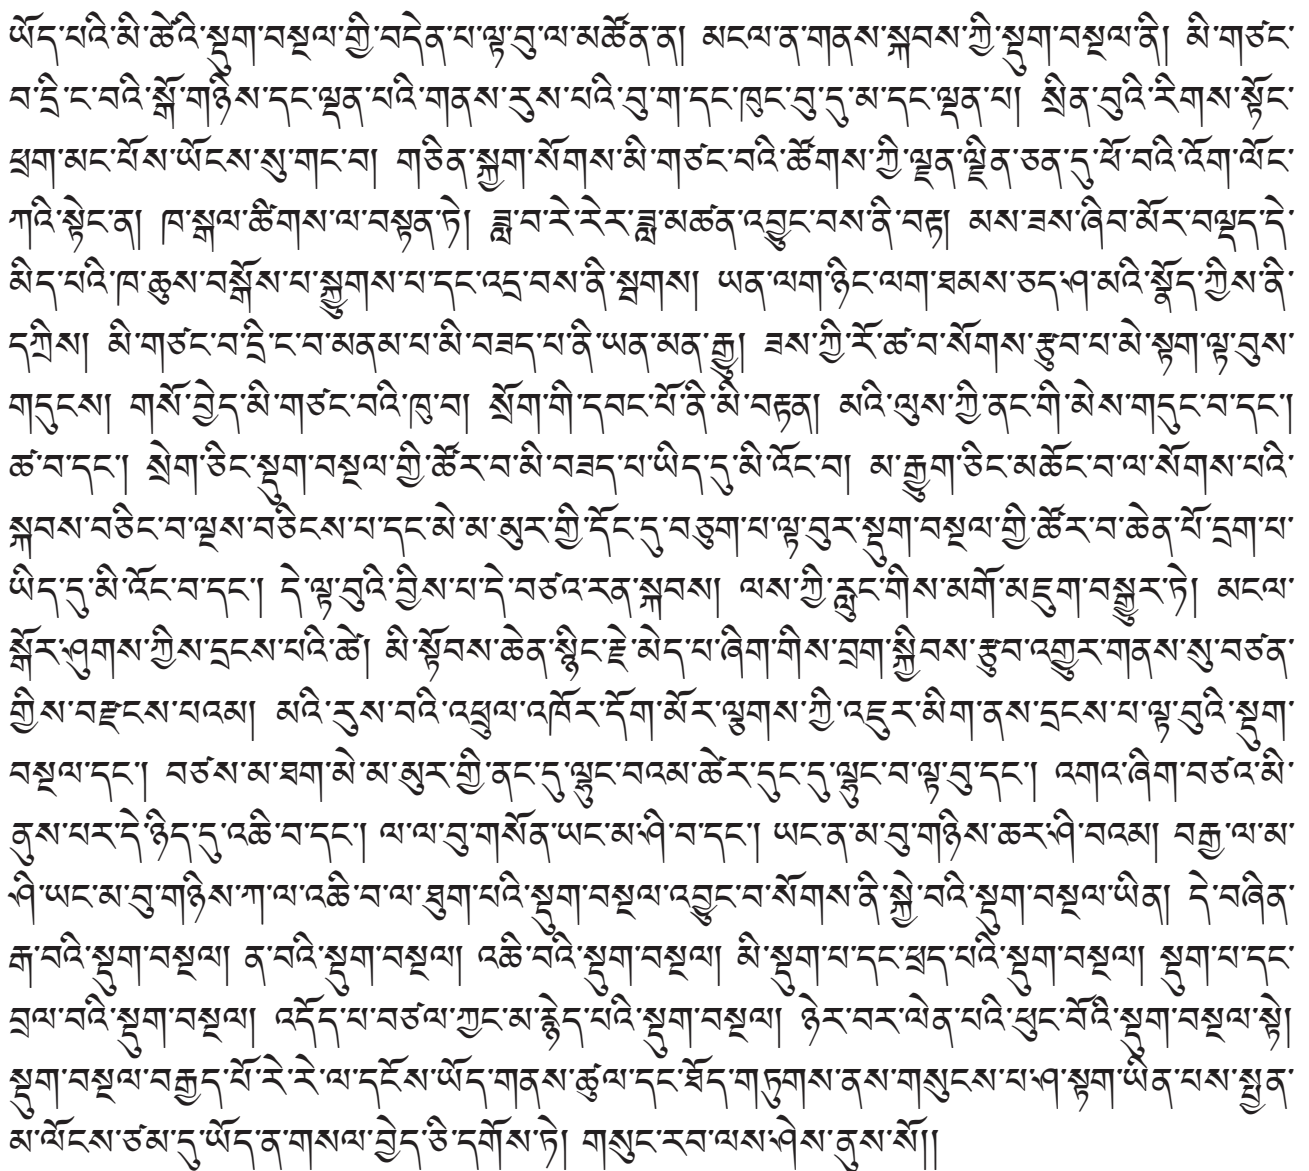 ཡོད་པའི་མི་ཚེའི་སྡུག་བསྔལ་གྱི་བདེན་པ་ལྟ་བུ་ལ་མཚོན་ན། མངལ་ན་གནས་སྐབས་ཀྱི་སྡུག་བསྔལ་ནི། མི་གཙང་
བ་དྲི་ང་བའི་སྒོ་གཉིས་དང་ལྡན་པའི་གནས་རུས་པའི་བུ་ག་དང་ཁུང་བུ་དུ་མ་དང་ལྡན་པ། སྲིན་བུའི་རིགས་སྟོང་
ཕྲག་མང་པོས་ཡོངས་སུ་གང་བ། གཅིན་སྐྱག་སོགས་མི་གཙང་བའི་ཚོགས་ཀྱི་ལྗན་ལྗིན་ཅན་དུ་ཕོ་བའི་འོག་ལོང་
ཀའི་སྟེང་ན། ཁ་སྒལ་ཚིགས་ལ་བསྟན་ཏེ། ཟླ་བ་རེ་རེར་ཟླ་མཚན་འབྱུང་བས་ནི་བརྟ། མས་ཟས་ཞིབ་མོར་བལྡད་དེ་
མིད་པའི་ཁ་ཆུས་བསྒོས་པ་སྐྱུགས་པ་དང་འདྲ་བས་ནི་སྦགས། ཡན་ལག་ཉིང་ལག་ཐམས་ཅད་ཤ་མའི་སྣོད་ཀྱིས་ནི་
དཀྲིས། མི་གཙང་བ་དྲི་ང་བ་མནམ་པ་མི་བཟད་པ་ནི་ཡན་མན་རྒྱུ། ཟས་ཀྱི་རོ་ཚ་བ་སོགས་རྩུབ་པ་མེ་སྟག་ལྟ་བུས་
གདུངས། གསོ་བྱེད་མི་གཙང་བའི་ཁུ་བ། སྲོག་གི་དབང་པོ་ནི་མི་བརྟན། མའི་ལུས་ཀྱི་ནང་གི་མེས་གདུང་བ་དང་།
ཚ་བ་དང་། སྲེག་ཅིང་སྡུག་བསྔལ་གྱི་ཚོར་བ་མི་བཟད་པ་ཡིད་དུ་མི་འོང་བ། མ་རྒྱུག་ཅིང་མཆོང་བ་ལ་སོགས་པའི་
སྐབས་བཅིང་བ་ལྔས་བཅིངས་པ་དང་མེ་མ་མུར་གྱི་དོང་དུ་བཅུག་པ་ལྟ་བུར་སྡུག་བསྔལ་གྱི་ཚོར་བ་ཆེན་པོ་དྲག་པ་
ཡིད་དུ་མི་འོང་བ་དང་། དེ་ལྟ་བུའི་བྱིས་པ་དེ་བཙའ་རན་སྐབས། ལས་ཀྱི་རླུང་གིས་མགོ་མཇུག་བསྒྱུར་ཏེ། མངལ་
སྒོར་ཤུགས་ཀྱིས་དྲངས་པའི་ཚེ། མི་སྟོབས་ཆེན་སྙིང་རྗེ་མེད་པ་ཞིག་གིས་བྲག་སྐྱིབས་རྩུབ་འགྱུར་གནས་སུ་བཙན་
གྱིས་བརྫངས་པའམ། མའི་རུས་བའི་འཕྲུལ་འཁོར་དོག་མོར་ལྕགས་ཀྱི་འཇུར་མིག་ནས་དྲངས་པ་ལྟ་བུའི་སྡུག་
བསྔལ་དང་། བཙས་མ་ཐག་མེ་མ་མུར་གྱི་ནང་དུ་ལྷུང་བའམ་ཚེར་དུང་དུ་ལྷུང་བ་ལྟ་བུ་དང་། འགའ་ཞིག་བཙའ་མི་
ནུས་པར་དེ་ཉིད་དུ་འཆི་བ་དང་། ལ་ལ་བུ་གསོན་ཡང་མ་ཤི་བ་དང་། ཡང་ན་མ་བུ་གཉིས་ཆར་ཤི་བའམ། བརྒྱ་ལ་མ་
ཤི་ཡང་མ་བུ་གཉིས་ཀ་ལ་འཆི་བ་ལ་ཐུག་པའི་སྡུག་བསྔལ་འབྱུང་བ་སོགས་ནི་སྐྱེ་བའི་སྡུག་བསྔལ་ཡིན། དེ་བཞིན་
རྒ་བའི་སྡུག་བསྔལ། ན་བའི་སྡུག་བསྔལ། འཆི་བའི་སྡུག་བསྔལ། མི་སྡུག་པ་དང་ཕྲད་པའི་སྡུག་བསྔལ། སྡུག་པ་དང་
བྲལ་བའི་སྡུག་བསྔལ། འདོད་པ་བཙལ་ཀྱང་མ་རྙེད་པའི་སྡུག་བསྔལ། ཉེར་བར་ལེན་པའི་ཕུང་པོའི་སྡུག་བསྔལ་སྟེ།
སྡུག་བསྔལ་བརྒྱད་པོ་རེ་རེ་ལ་དངོས་ཡོད་གནས་ཚུལ་དང་ཐོད་གཏུགས་ནས་གསུངས་པ་ཤ་སྟག་ཡིན་པས་སྤྱན་
མ་ལོངས་ཙམ་དུ་ཡོད་ན་གསལ་བྱེད་ཅི་དགོས་ཏེ། གསུང་རབ་ལས་ཤེས་ནུས་སོ།།